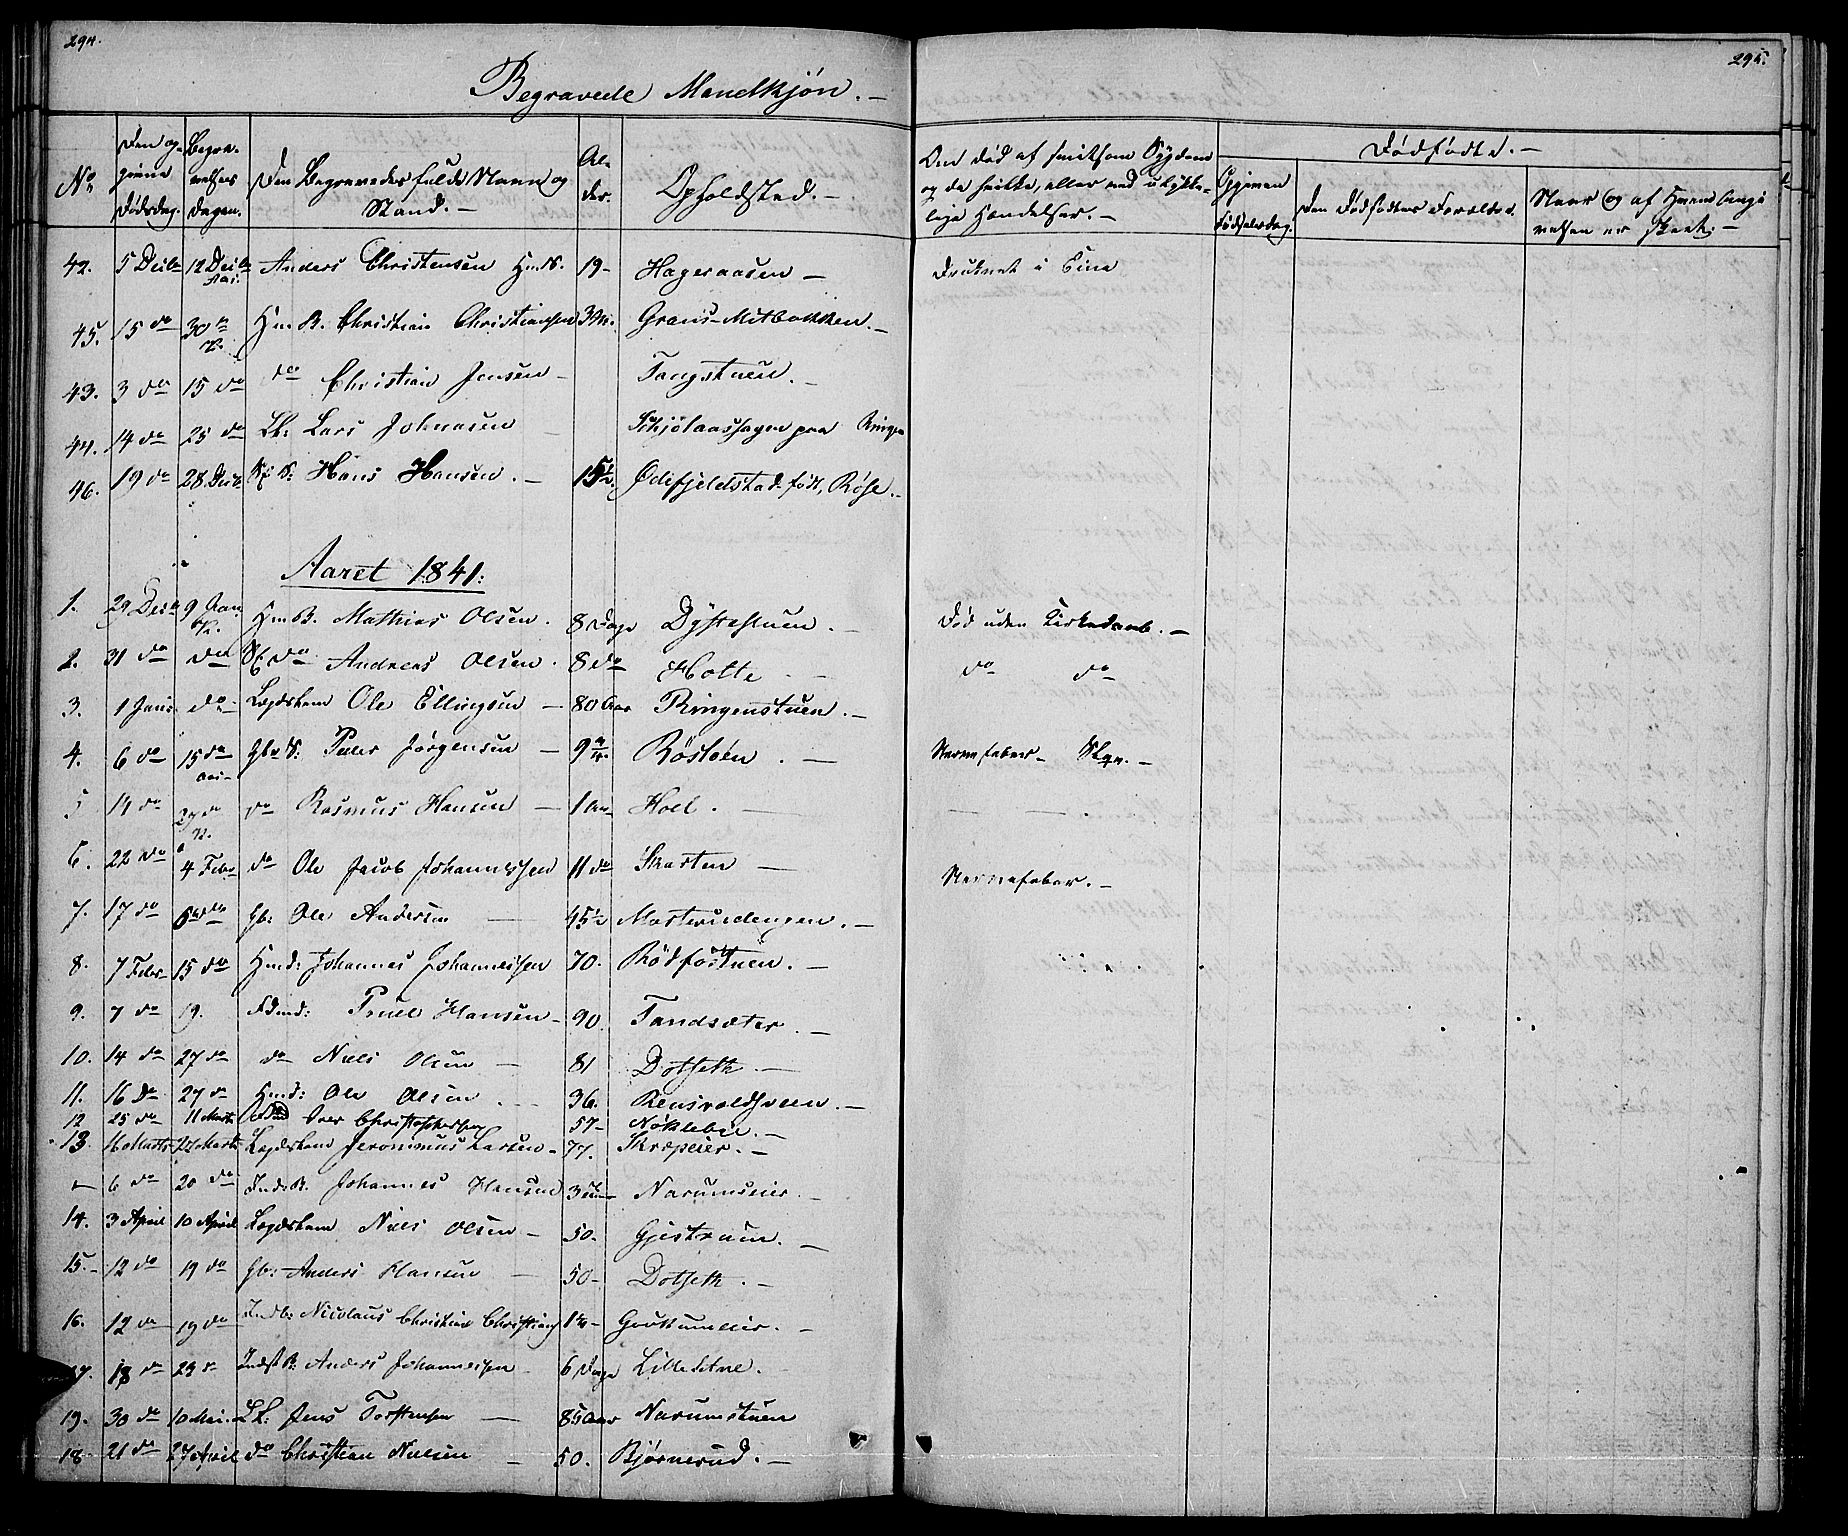 294.
295.
Begravede Mandkjøn. —
No
Den og-
givne
Dødsdag.
Begra-
velses
Dagen.
Den Begravedes fulde Navn og
Stand. —
Al-
der.
Opholdsted. —
Om død af smitsom Sygdom
og da hvilke, eller ved ulykke-
lige Hændelser. —
Dødfødte. —
Opgiven
Fødselsdag.
Den Dødfødtes Forældre.
42. 5 Decbr 12 Decbr Anders Christensen 19- Hageraasen — Druknet i Eina
45. 15 do 30 Hm B. Christian Christiansen Graus-Mitbakken. —
43. 3 do 15 do do Christian Jensen — Tangstuen. —
44. 14 do 25 do Lk: Lars Johnasen — Skjølaashagen paa Ringen
46. 19 do 28 Decb Hans Hansen. — Ødefjeldstad født, Røse. —
Aaret 1841:
1. 29 Decbr 9 Jan Hm B. Mathias Olsen. 8 Dage Dystestuen. — Død uden Kirkedaab. —
2. 31 do do do Andreas Olsen. 8 do Hotte — do do
3. 1 Janr. do Lægdslem Ole Ellingsen — 80 Aar Ringenstuen. —
4. 6 do 15 do Gbr S: Peder Jørgensen — 9 Røsloen. — Nervefeber —
5 14 do 27 do do Rasmus Hansen — 1 Aar Hoel. —
6. 22 do 4 Febr do Ole Jacob Johannessen 11 do Skarten — Nervefeber. —
7. 17 do 6 do Gb: Ole Andersen — 45½ Masterudengen. —
8. 7 Febr 15 do Hmd: Johannes Johannessen 70. Rødfosstuen. —
9. 7 do 19. Fdmd: Truel Hansen — 90 Tandsæter. —
10. 14 do 27 do do Niels Olsen — 81 Dotseth —
11. 16 Do 27 do Hmd: Ole Olsen — 36. Rensvoldsveen. —
12 25 do 11 Marts Iver Christophersen 57- Nøkleby. —
13. 11 Marts 22 Marts Lægdslem Jeronimus Larsen — 77. Skræpeier. —
— 6 do 20 do Inds: B. Johannes Hansen 3 Narumseier. —
14. 3 April 10 April Lægdslem Niels Olsen — 50. Gjestrum. —
15. — 12 do 19 do Gb: Anders Hansen — 50 — Dotseth. —
16. 12 do 19 do Indb: Nicolaus Christian Christians Gaukumeier. —
17. 18 do 29 do Indst B: Anders Johannessen — 6 Dage Lille Sitne. —
19. 30 do 10 Mai. Lk: Jens Torstensen — 85 Aar Narumstuen
18 21 do 27 April do Christian Nielsen — 50. Bjørnerud. —